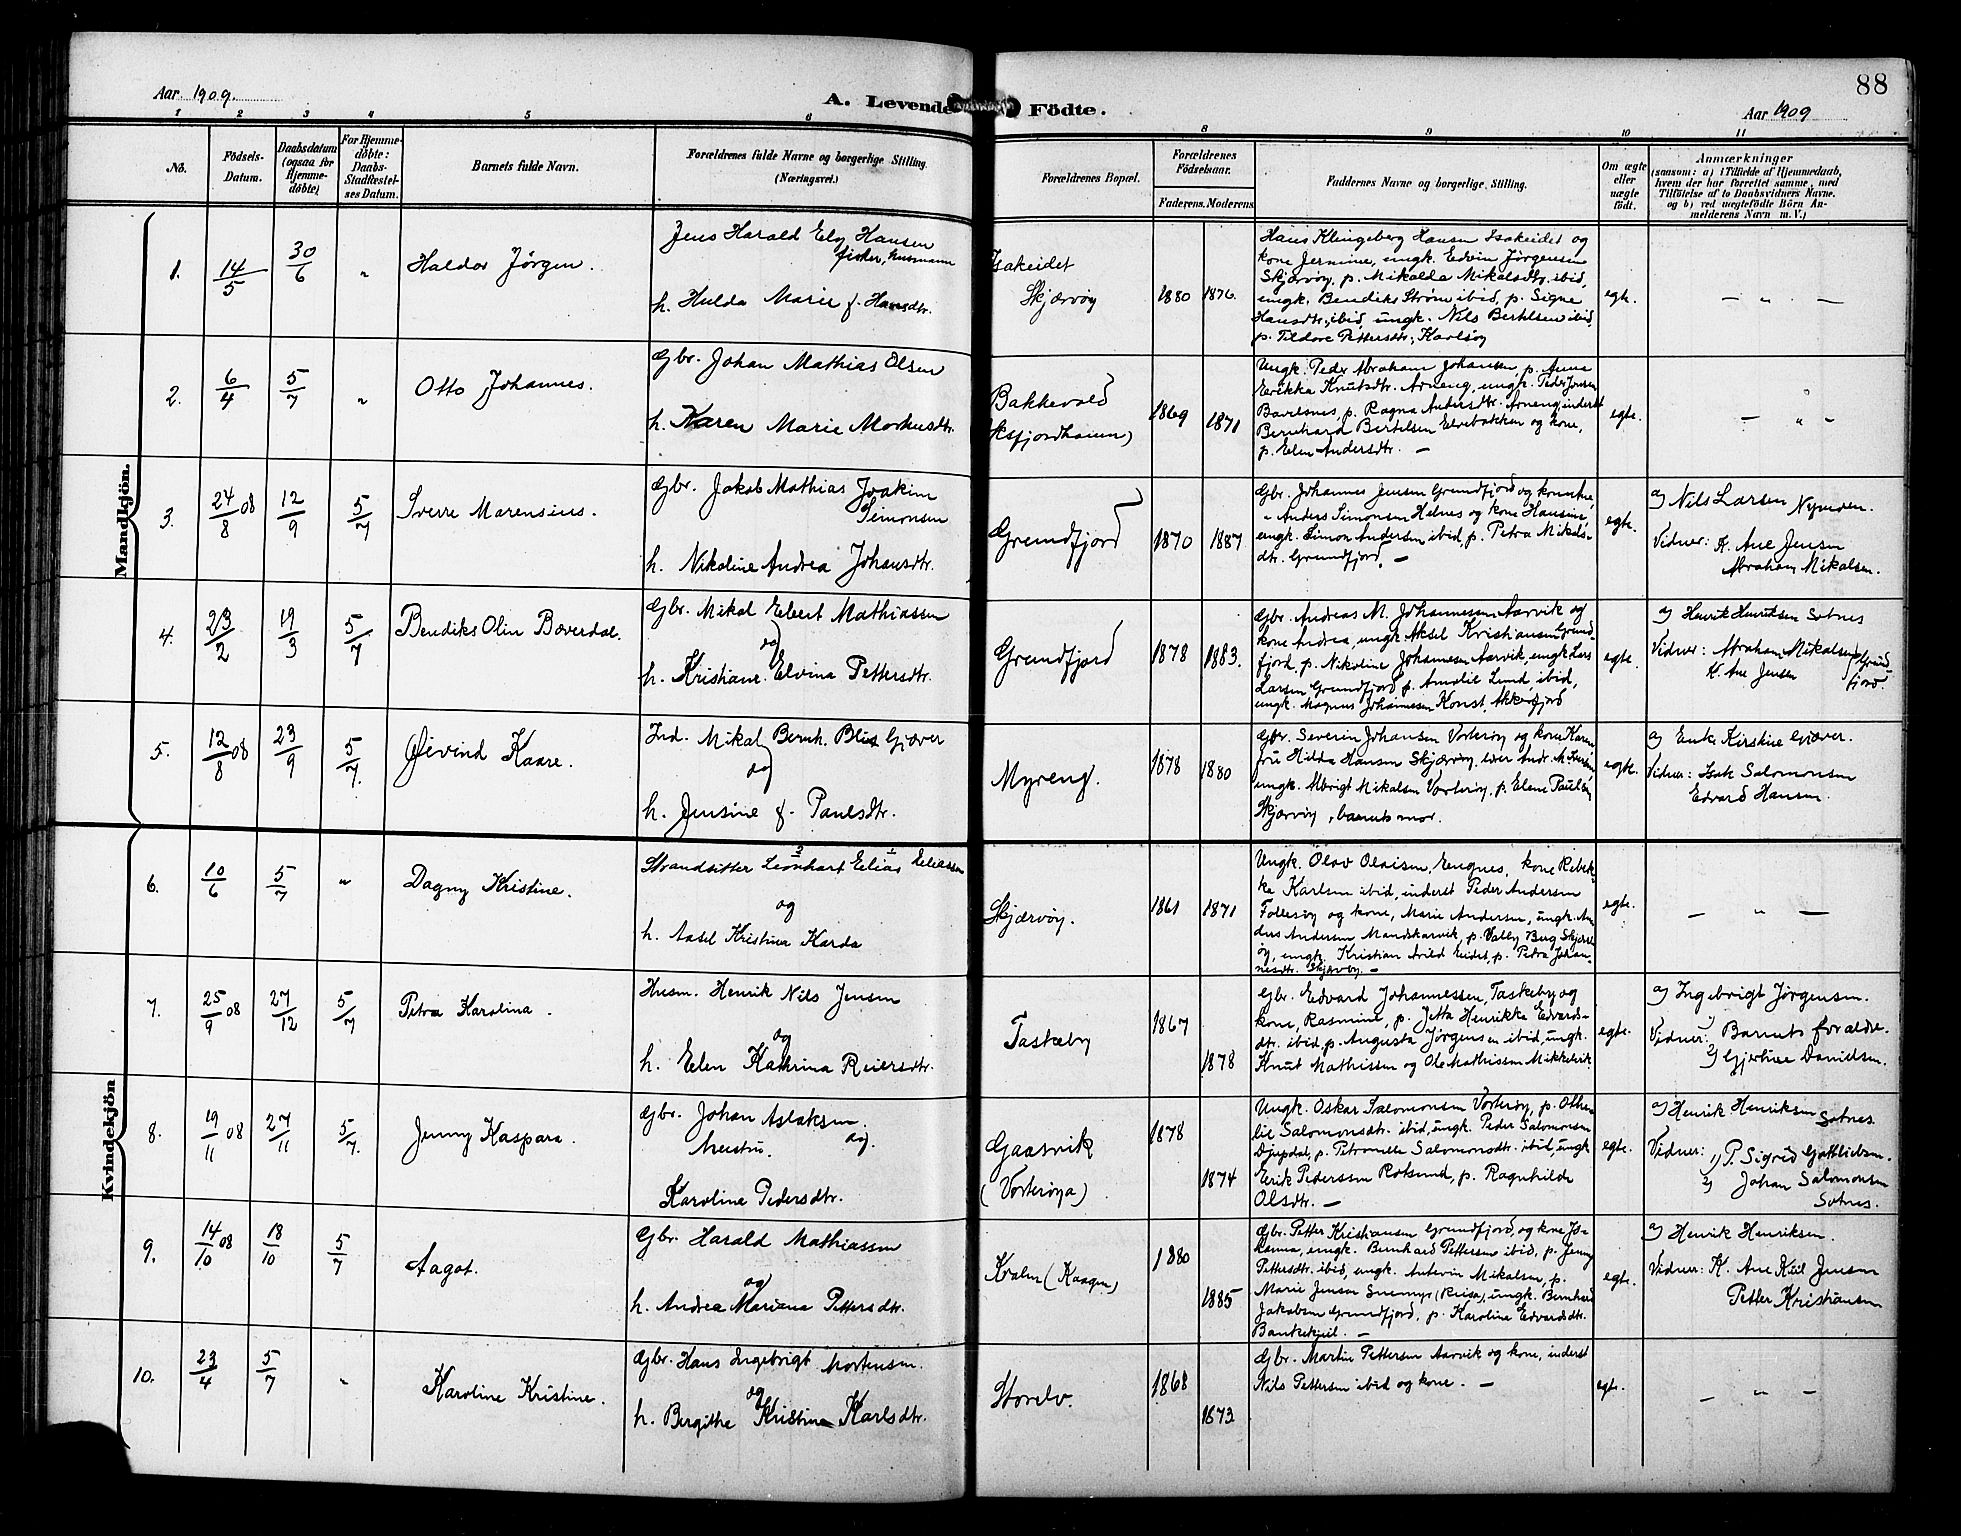 88
Aar 1909.
A. Levende Födte.
Aar 1909
1 2 3 4 5 6 8 9 10 11
No.
Födsels-Datum.
Daabsdatum (ogsaa for Hjemme-döbte)
For Hjemme-döbte: Daabs-Stadfæstel-ses Datum.
Barnets fulde Navn.
Forældrenes fulde Navne og borgerlige Stilling. (Næringsvei.)
Forældrenes Bopæl.
Forældrenes Födselsaar.
Faderens. Moderens.
Faddernes Navne og borgerlige Stilling.
Om ægte eller uægte födt.
Anmærkninger
(saasom: a) i Tilfælde af Hjemmedaab,
hvem der har forrettet samme, med
Tilföielse af to Daabsvidners Navne.
og b) ved uægtefödte Börn An-
melderens Navn m. V.)
Mandkjön.
1. 14/5 30/6 " Haldor Jörgen.
Jens Harald Ely Hansen
fisker, husmann
h. Hulda Marie f. Hansdtr.
Isakeidet
Skjærvöy
1880 1876.
Hans Klingeberg Hansen Isakeidet og
kone Jernine, ungk. Edvin Jörgensen
Skjærvöy, p. Mikalda Mikalsdtr. ibid,
ungk. Bendiks Ström ibid, p. Signe
Hansdtr. ibid, ungk. Nils Bertelsen ibid,
p. Tildore Pettersdtr. Karlsöy
egte.
— " —
2. 6/4 5/7 " Otto Johannes.
Gbr. Johan Mathias Olsen
h. Karen Marie Morkusdtr.
Bakkevold
1869 1871
Ungk. Peder Abraham Johansen p. Anna
Erikka Knutsdtr. Arneng, ungk. Peder Jensen
p. Ragna Andersdtr. Arneng, inderst
Bernhard Bertelsen Elvebakken og kone,
p. Elen Andersdtr. —
egte.
— " —
3. 24/8 08 12/9 5/7 Sverre Marensius.
Gbr. Jakob Mathias Joakim
Simonsen
h. Nikoline Andrea Johansdtr.
Grundfjord
1870 1887
Gbr. Johannes Jensen Grundfjord og kone Ane,
" Anders Simonsen Helnes og kone Hansine,
ungk. Simon Andersen ibid, p. Petra Mikals-
dtr. Grundfjord. —
egte.
a) Nils Larsen
Vidner: K. Ane Jensen
Abraham Mikalsen.
4. 23/2 19/3 5/7 Bendiks Olin Boverdal.
Gbr. Mikal Ebert Mathiassen
og
h. Kristiane Elvina Pettersdtr.
Grundfjord
1878 1883.
Gbr. Andreas M. Johannessen Aarvik og
kone Andrea, ungk. Aksel Kristiansen Grund-
fjord, p. Nikoline Johannesen Aarvik, ungk. Lars
Larsen Grundfjord p. Amalie Lund ibid,
ungk. Magnus Johannesen Konst, Akkarfjord
egte.
a) Henrik Henriksen Sotnes
Vidner: Abraham Mikalsen
K. Ane Jensen
Grund-
fjord.
5. 12/8 08 23/9 5/7. Øivind Kaare.
Ind. Mikal Bernh. Blix Gjæver
og
h. Jensine f. Paulsdtr.
Myreng.
1878 1880
Gbr. Severin Johansen Vorteröy og kone Karen
fru Hilda Hansen Skjærvöy,
ungk. Albrigt Mikalsen Vorteröy, p. Elene Paulsen
Skjærvöy, barnets mor.
egte.
a) Enke Kirstine Gjæver.
Vidner: Isak Salomonsen
Edvard Hansen.
Kvindekjön
6. 10/6 5/7 " Dagny Kristine.
Strandsitter Leonhart Elias Eeliassen
og
h. Aasel Kristina Karda
Skjærvöy.
1861 1871
Ungk. Olav Olaisen, Engnes, kone Rebek-
ka Karlsen ibid, inderst Peder Andersen
Follesöy og kone, Marie Andersen, ungk. An-
ders Andersen Mandskarvik, p. Valby Berg Skjærv-
öy, ungk. Kristian Arild Eidet, p. Petra Johan-
nesdtr. Skjærvöy. —
egte.
— " —
7. 25/9 08 27/12 5/7 Petra Karolina.
Husm. Henrik Nils Jensen
og
h. Elen Kathrina Reiersdtr.
Taskeby
1867 1878
Gbr. Edvard Johannessen, Taskeby og
kone, Rasmine, p. Jetta Henrikke Edvards-
dtr. ibid, p. Augusta Jörgensen ibid, ungk.
Knut Mathissen og Ole Mathissen
egte.
a) Ingebrigt Jörgensen.
Vidner: 1) Barnets forældre.
2) Gjertine Danielsen.
8. 19/11 08 27/11 5/7. Jenny Kaspara.
Gbr. Johan Aslaksen
og
Karoline Pedersdtr.
Gaasvik
(Vorteröya)
1878 1874
Ungk. Oskar Salomonsen Vorteröy, p. Othe-
lie Salomonsdtr. ibid, ungk. Peder Salomonsen
Djupdal, p. Petronelle Salomonsdtr. ibid, ungk.
Erik Pederssen Rotsund, p. Ragnhilde
Olsdtr. —
egte.
a) Henrik Henriksen Sotnes.
Vidner: 1) P. Sigrid Gottliebsen.
2) Johan Salomonsen
Sotnes.
9. 14/10 08 18/10 5/7 Aagot.
Gbr. Harald Mathiassen
og
h. Andrea Mariana Pettersdtr.
(Kaagen)
1880 1885
Gbr. Petter Kristiansen Grundfjord, og kone Jo-
hanna, ungk. Bernhard Pettersen ibid, p. Jenny
Pettersdtr. ibid, ungk. Antorin Mikalsen, p.
Marie Jensen Snemyr (Reisa), ungk. Bernhard
Jakobsen Grundfjord, p. Karoline Edvardsdtr.
Bankekjeil. —
egte.
a) Henrik Henriksen.
Vidner: K. Ane Kiil Jensen
Petter Kristiansen
10. 23/4 5/7 " Karoline Kristine.
Gbr. Hans Ingebrigt Mortensen.
og
h. Bergithe Kristine Karlsdtr.
Storelv.
1868 1873
Gbr. Martin Pettersen Aarvik og kone, inderst
Nils Pettersen ibid og kone. —
egte.
— " —